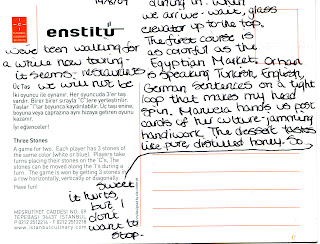 14/8/09
enstitü
we've been walking for
a while now touring -
it seems - restaurants
we will not be
dining in. When
we arrive - wait, glass
elevator up to the top.
The first course is
as colorful as the
Egyptian Market. Orhan
is speaking Turkish, English,
German sentences on a tight
loop that makes my head
spin. Manuela hands us post
cards of her culture-jamming
handiwork. The dessert tastes
like pure distilled honey. So
sweet
it hurts,
but I
don't
want to
stop.
Üç Taş
İki oyuncu ile oynanır. Her oyuncuda 3'er taş
vardır. Birer birer sırayla "C"lere yerleştirilir.
Taşlar "I"lar boyunca kaydırılabilir. Üç taşını enine,
boyuna veya çaprazına aynı hizaya getiren oyunu
kazanır.
İyi eğlenceler!
Three Stones
A game for two. Each player has 3 stones of
the same color (white or blue). Players take
turns placing their stones on the 'C's. The
stones can be moved along the 'I's during a
turn. The game is won by getting 3 stones in
a row horizontally, vertically or diagonally.
Have fun!
MEŞRUTİYET CADDESİ NO.
TEPEBAŞI 34430 İSTANBUL
www.istanbulculinary.com